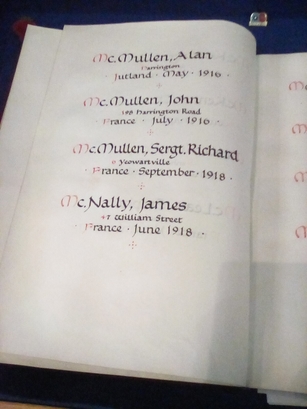 Mc.Mullen, Alan
Harrington
Jutland · May · 1916 ·
Mc.Mullen, John
Harrington Road
France · July · 1916 ·
Mc.Mullen, Sergt. Richard
France · September · 1918 ·
Mc.Nally, James
47 William Street
France · June 1918 ·